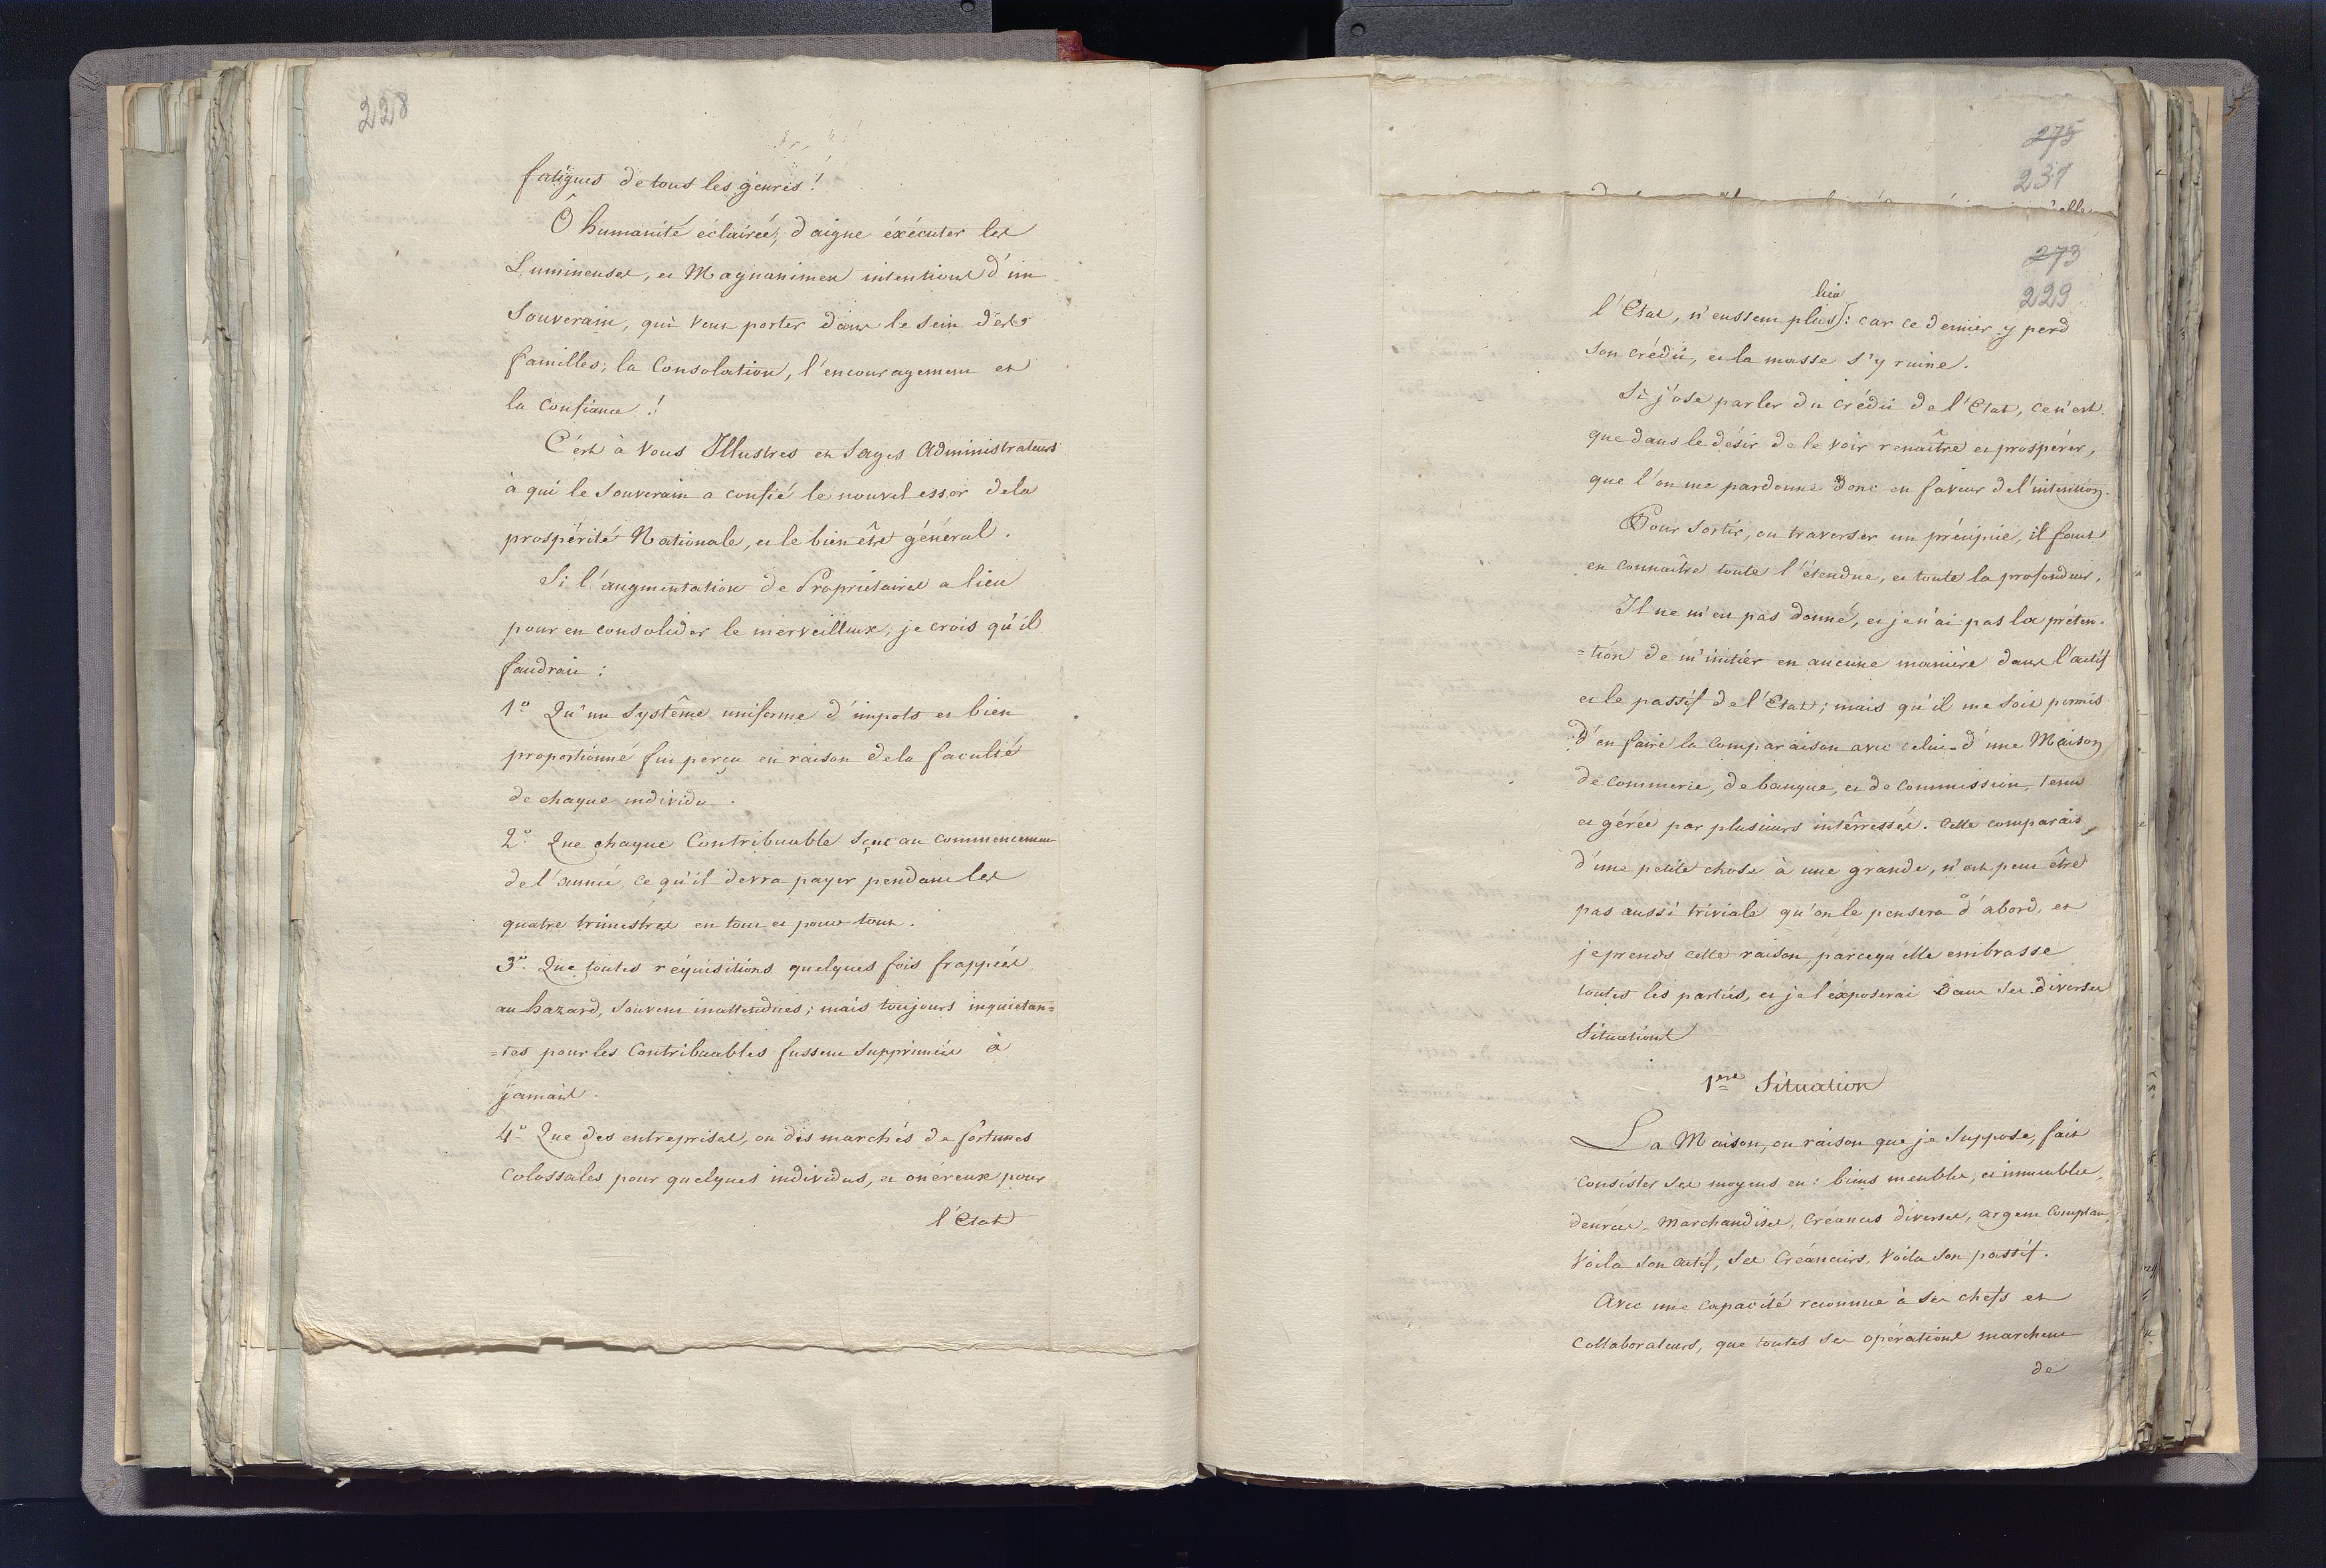 228
fatigues de tous les genres !
Ô humanité eclairée, daigne éxécuter les
Lumineuses, et Magnanimes intentions d'un
Souverain, qui veut porter dans le sein des
familles, la Consolation, l'encouragement et
la Confiance !
C'est à Vous Illustres et Sages Administrateurs
à qui le Souverain a confié le nouvel essor dela
prospérité Nationale, et le bien être général.
Si l'augmentation de Propriétaires a lieu
pour en consolider le merveilleux, je crois qu'il
faudrait :
1.º Qu'un Systême uniforme d'impots et bien
proportionné fut perçu en raison dela faculté
de chaque individu.
2.º Que chaque Contribuable sçut au Commencement
de l'année, ce qu'il devra payer pendant les
quatre trimestres en tout et pour tout.
3.º Que toutes réquisitions quelques fois frappées
au hazard, souvent inattendues ; mais toujours inquietan=
=tes pour les Contribuables fussent Supprimées à
jamais.
4.º Que des entreprises, ou des marchés de fortunes
Colossales pour quelques individus, et onéreux pour
l'Etat
275
237
273
229
lieu
l'Etat, n'eussent plus : car ce dernier y perd
son crédit, et la masse s'y ruine.
Si j'ose parler du crédit de l'Etat, ce n'est
que dans le désir de le voir renaître et prospérer,
que l'on me pardonne donc en faveur del'intention.
Pour Sortir, ou traverser un précipice, il faut
en connaître toute l'étendue, et toute la profondeur,
Il ne m'est pas donné, et je n'ai pas la préten-
=tion de m'initier en aucune manière dans l'actif
et le passif de l'Etat ; mais qu'il me soit permis
d'en faire la Comparaison avec celui d'une Maison
de Commerce, de banque, et de Commission, tenue
et gérée par plusieurs intêrressés. Cette comparais.
d'une petite chose à une grande, n'est peut être
pas aussi triviale qu'on le pensera d'abord, et
je prends cette raison, parcequ'elle embrasse
toutes les parties, et je l'éxposerai dans ses diverses
Situations
1ere Situation
La Maison, ou raison que je suppose, fait
Consister ses moyens en : biens meubles, et immeubles,
denrées, Marchandises, Créances diverses, argent Comptant,
Voila son actif, ses Créanciers, Voila son passif.
Avec une Capacité reconnue à ses chefs et
Collaborateurs, que toutes ses opérations marchent
de